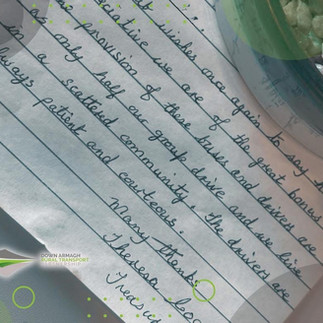 wishes once again to say
use are of the great
provision of these buses and drivers are
only half our group drive and we live
in a scattered community. The drivers are
always patient and courteous.
Many thanks
Theresa
DOWN ARMAGH
RURAL TRANSPORT